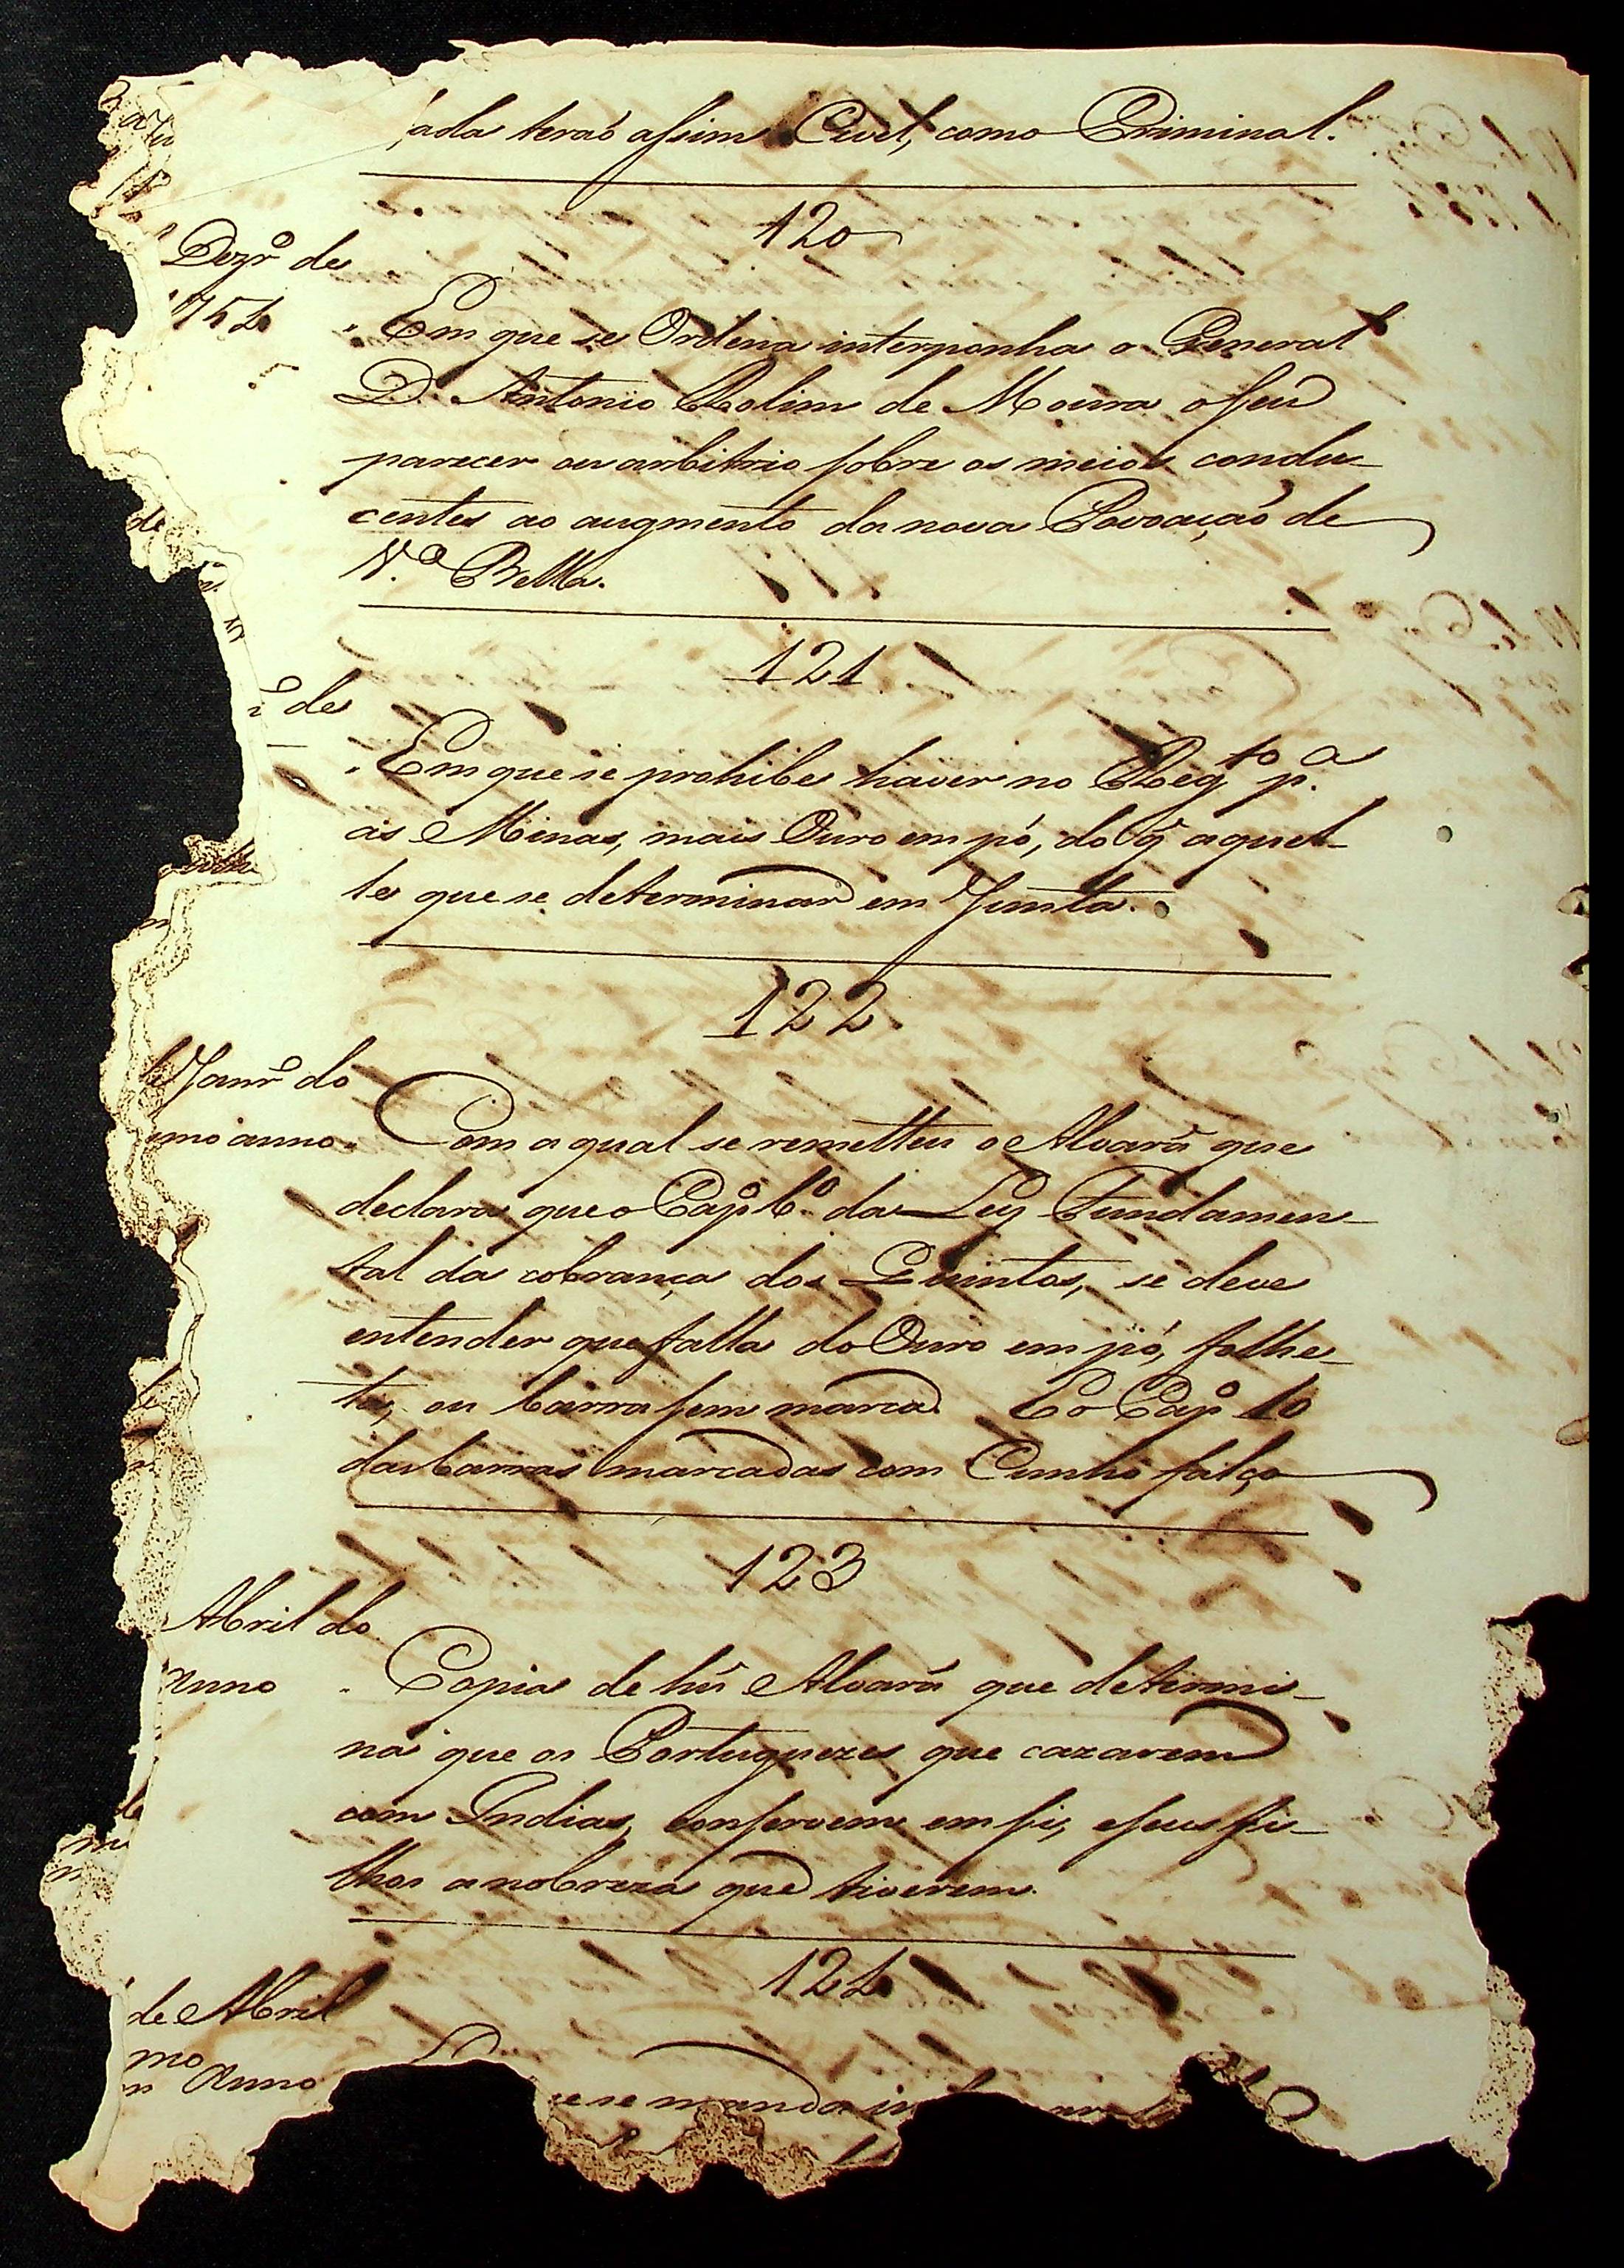 ada teraõ assim Civel, como Criminal.
120
Dezr.º de
1754
Em que se Ordena interponha o General
D. Antonio Rolim de Moura o seu
parecer ou arbitrio sobre os meios condu-
centes ao augmento da nova Povoaçaõ de
V.ª Bella.
121
de
Em que se prohibe haver no Reg.to p.ª
as Minas, mais Ouro em pó, do q̃ aquel-
le que se determinar em Junta.
122
Janr.º do
mo anno.
Com a qual se remetteu o Alvará que
declara que o Cap.º 6.º da Ley Fundamen-
tal da cobrança dos Quintos, se deve
entender que falla do Ouro em pó, folhe-
ta, ou barra sem marca. E o Cap.º 10
das barras marcadas com Cunho falço
123
Abril do
Anno
Copia de hũ Alvará que determi-
na que os Portuguezes que cazarem
com Indias, conservem em si, e seus fi-
lhos a nobreza que tiverem.
124
de Abril
mo Anno
se manda